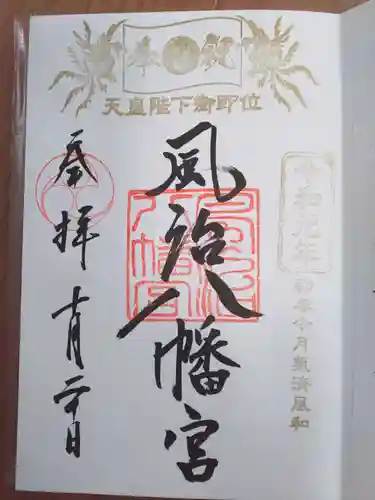 奉祝
天皇陛下御即位
令和元年
初春令月氣淑風和
風治八幡宮
奉拝
十月二十日